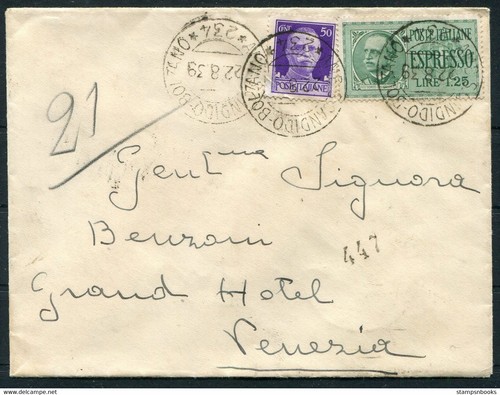 CENT. 50
POSTE ITALIANE
POSTE ITALIANE
ESPRESSO
LIRE 1.25
CANDIDO-BOLZANO
*234*
22.8.39
21
Gentma Signora
Benzoni
Grand Hotel
Venezia
447
www.delcampe.net
stampsnbooks